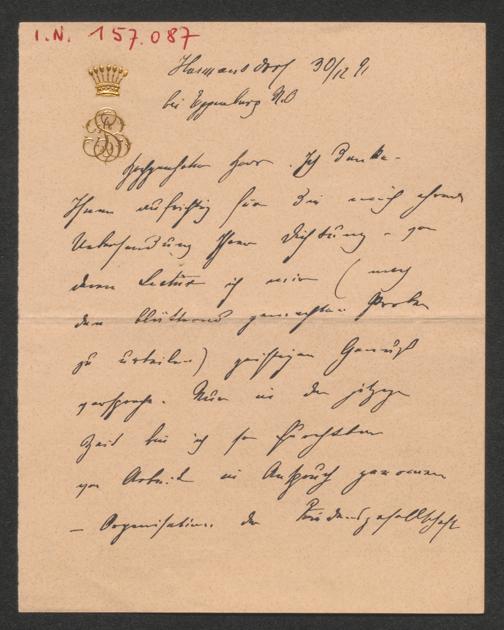 I.N. 157.087
Harmannsdorf 30/12 91
bei Eggenburg N.Ö
Hochgeehrter Herr. Ich danke
Ihnen aufrichtig für die mich ehrende
Uebersendung Ihrer Dichtung – von
deren Lectüre ich mir (nach
den blätternd gemachten Proben
zu urteilen) geistigen Genuß
verspreche. Nur in der jetzigen
Zeit bin ich so furchtbar
von Arbeit in Anspruch genommen
– Organisation der Friedensgesellschaft